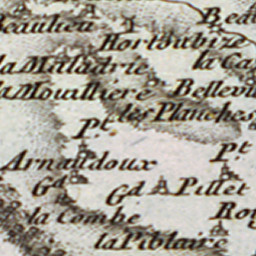 Beaulieu
Beau
Hortoubize
la Maladrie
la Ca
la Mouilliere
Bellevu
les Planches
Pt.
Arnaudoux
Pt.
Gd.
Gd.
Pillet
la Combe
Roy
la Piblaire